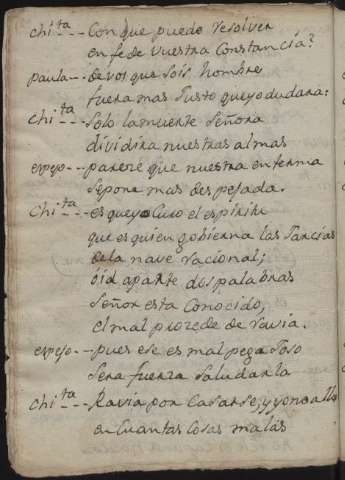 chi^ta --- Con que puedo resolver
en fe de vuestra Constancia?
paula -- de vos que sois hombre
fuera mas Justo que yo dudara:
chi^ta --- Solo la muerte Señora
dividira nuestras almas
espejo --- pareze que nuestra enferma
se pone mas despejada.
Chi^ta --- es que yo Curo el espiritu
que es quien gobierna las Jarcias
de la nave racional;
oid aparte dos palabras
Señor esta Conocido,
el mal prozede de ravia.
espejo --- pues ese es mal pegajoso
sera fuerza saludarla
chi^ta --- Ravia por Casarse, y yo no allo
en Cuantas Cosas malas